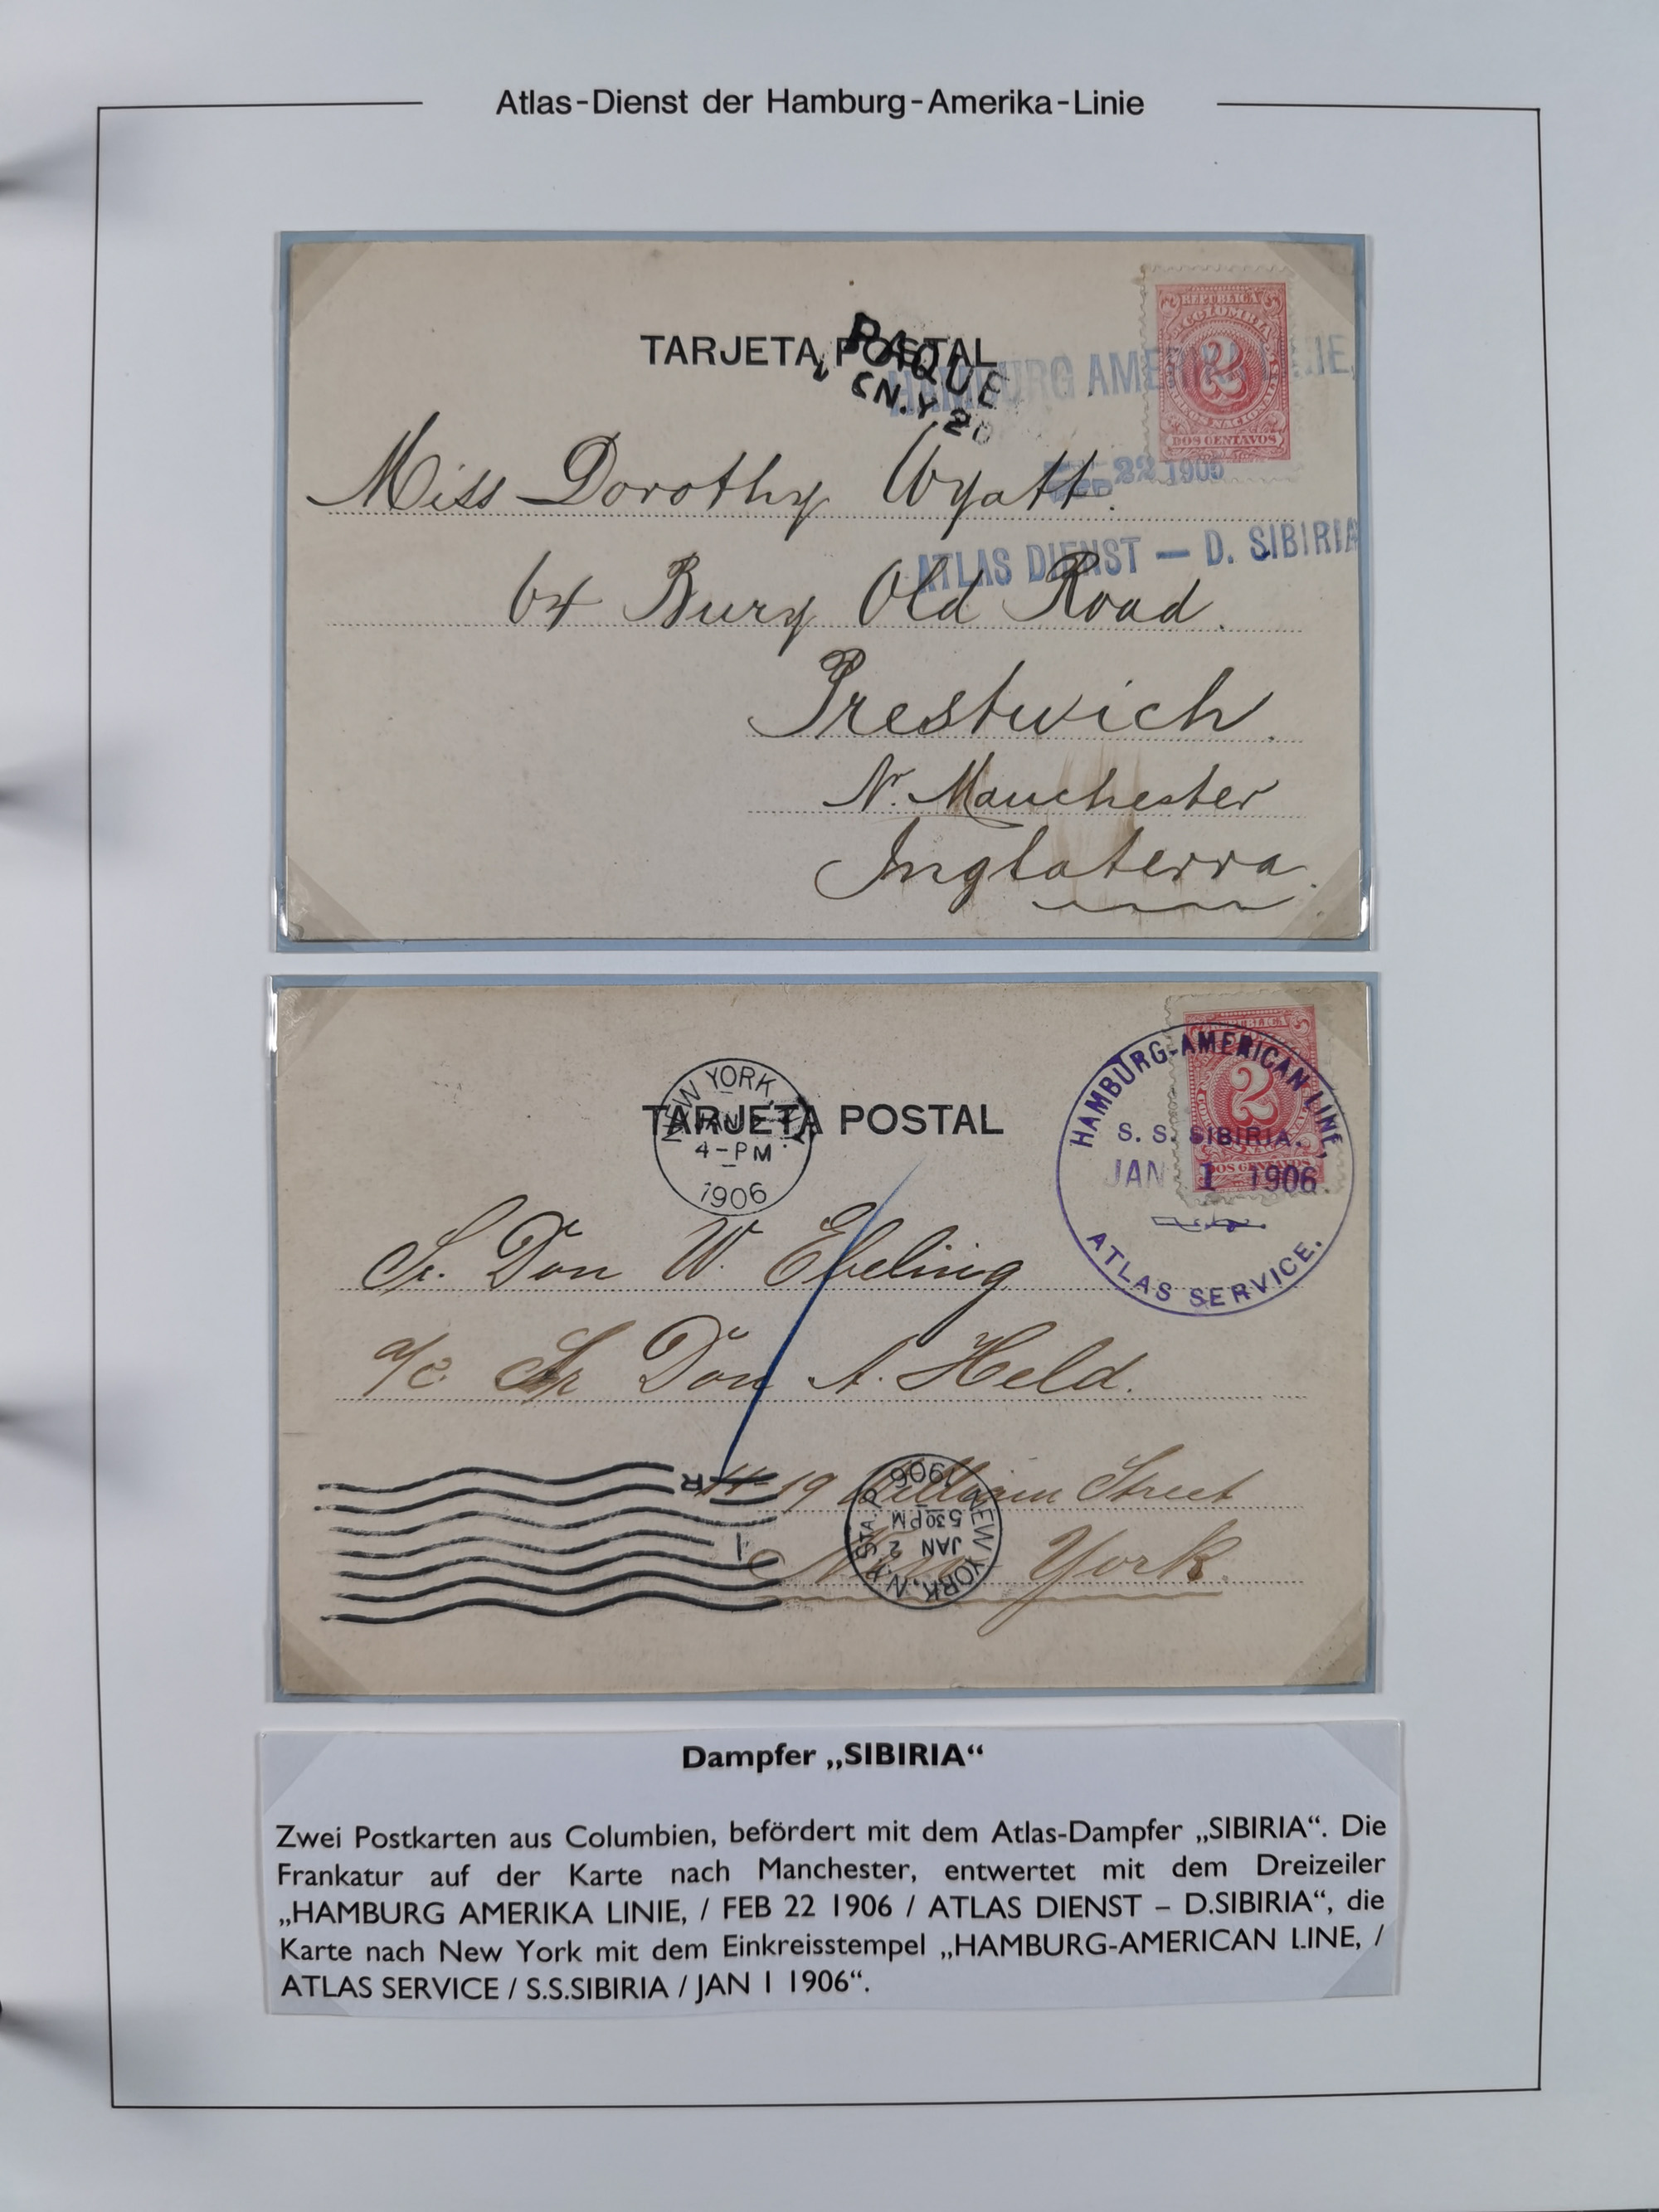 Atlas-Dienst der Hamburg-Amerika-Linie
TARJETA POSTAL
PAQUE
N.Y 20
REPUBLICA
DE COLOMBIA
2
DOS CENTAVOS
HAMBURG AMERIKA LINIE,
FEB 22 1906
ATLAS DIENST — D. SIBIRIA
Miss Dorothy Wyatt.
64 Bury Old Road.
Prestwich.
Nr. Manchester
Inglaterra.
TARJETA POSTAL
NEW YORK, N.Y.
4-PM
1906
REPUBLICA
2
DOS CENTAVOS
HAMBURG-AMERICAN LINE,
S. S. SIBIRIA.
JAN 1 1906
ATLAS SERVICE.
Sr. Don W. Ebeling
a/c. Sr Don A. Held.
11-19 William Street
New York.
R
1
NEW YORK, N.Y. STA. P
JAN 2
530PM
1906
Dampfer „SIBIRIA“
Zwei Postkarten aus Columbien, befördert mit dem Atlas-Dampfer „SIBIRIA“. Die
Frankatur auf der Karte nach Manchester, entwertet mit dem Dreizeiler
„HAMBURG AMERIKA LINIE, / FEB 22 1906 / ATLAS DIENST – D.SIBIRIA“, die
Karte nach New York mit dem Einkreisstempel „HAMBURG-AMERICAN LINE, /
ATLAS SERVICE / S.S.SIBIRIA / JAN 1 1906“.